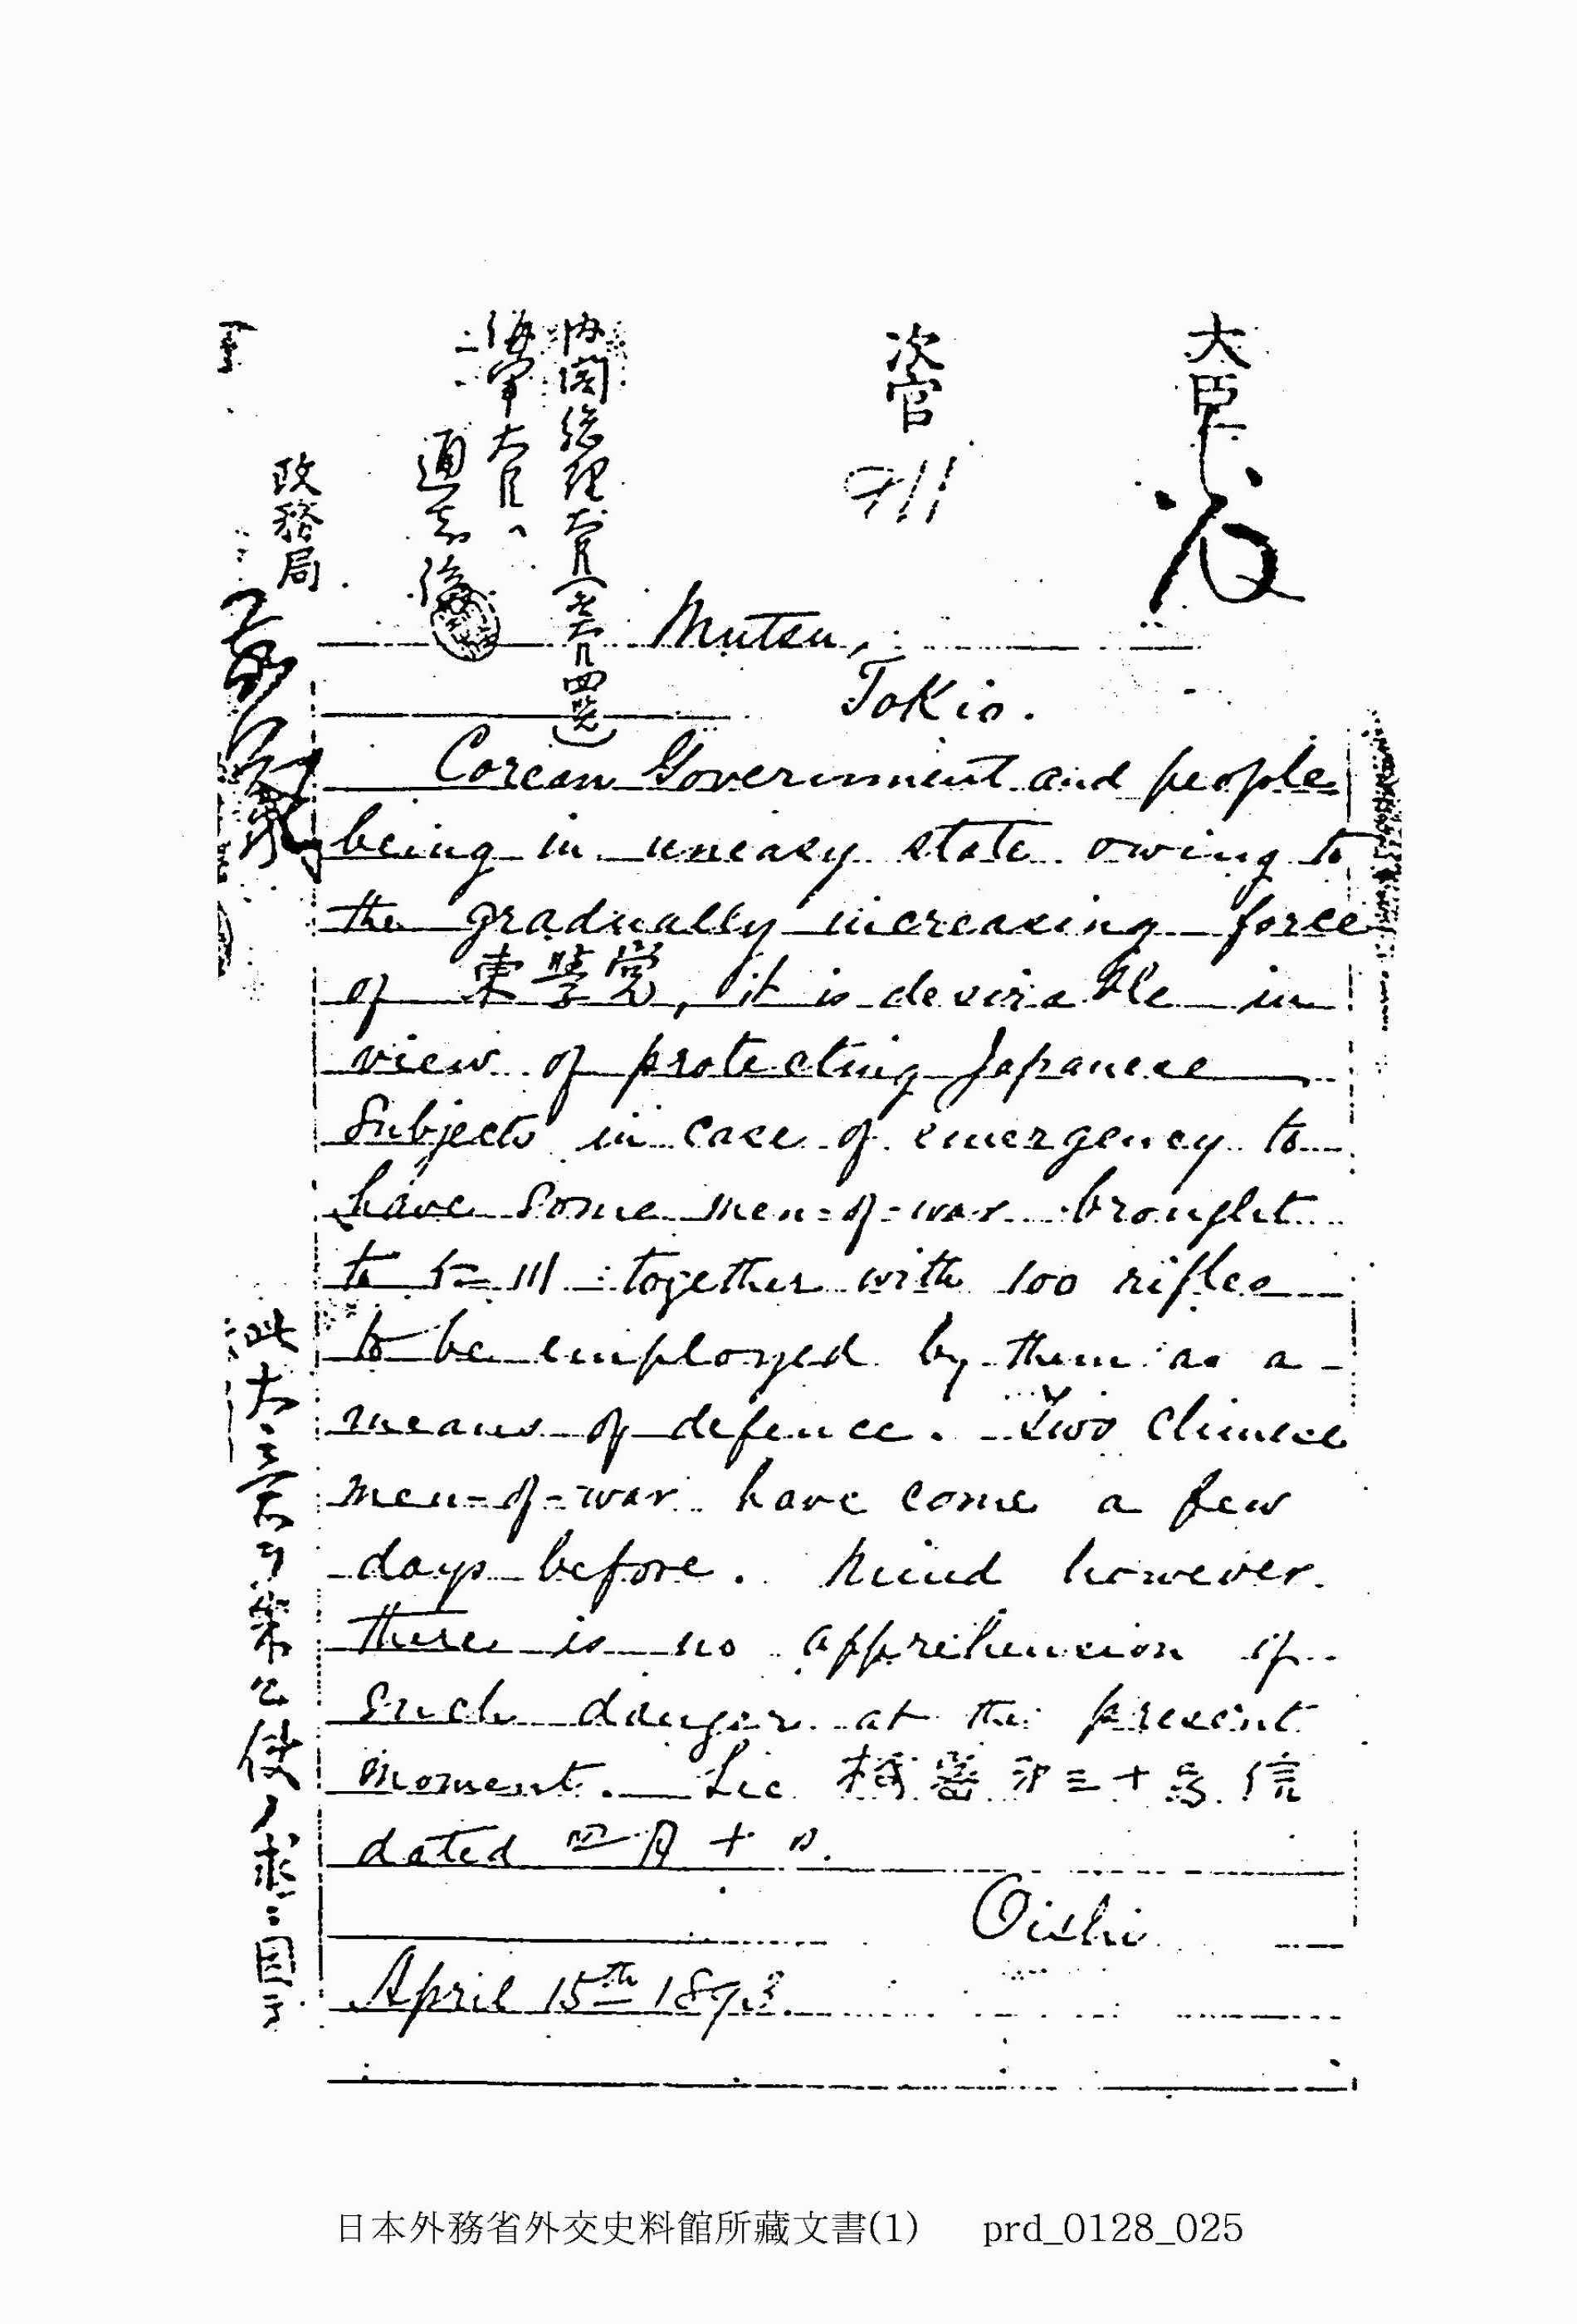 大臣
次官
内閣総理大臣
海軍大臣へ
通知後
政務局
Mutsu,
Tokio.
Corean Government and people
being in uneasy state owing to
the gradually increasing force
of 東學党, it is desirable in
view of protecting Japanese
Subjects in case of emergency to
have some men-of-war brought
to 仁川 together with 100 rifles
to be employed by them as a
means of defence. Two Chinese
men-of-war have come a few
days before. Mind however
there is no apprehension of
such danger at the present
moment. See 機密第三十号信
dated 四月十日.
Oishi
April 15th 1893.
日本外務省外交史料館所藏文書(1) prd_0128_025